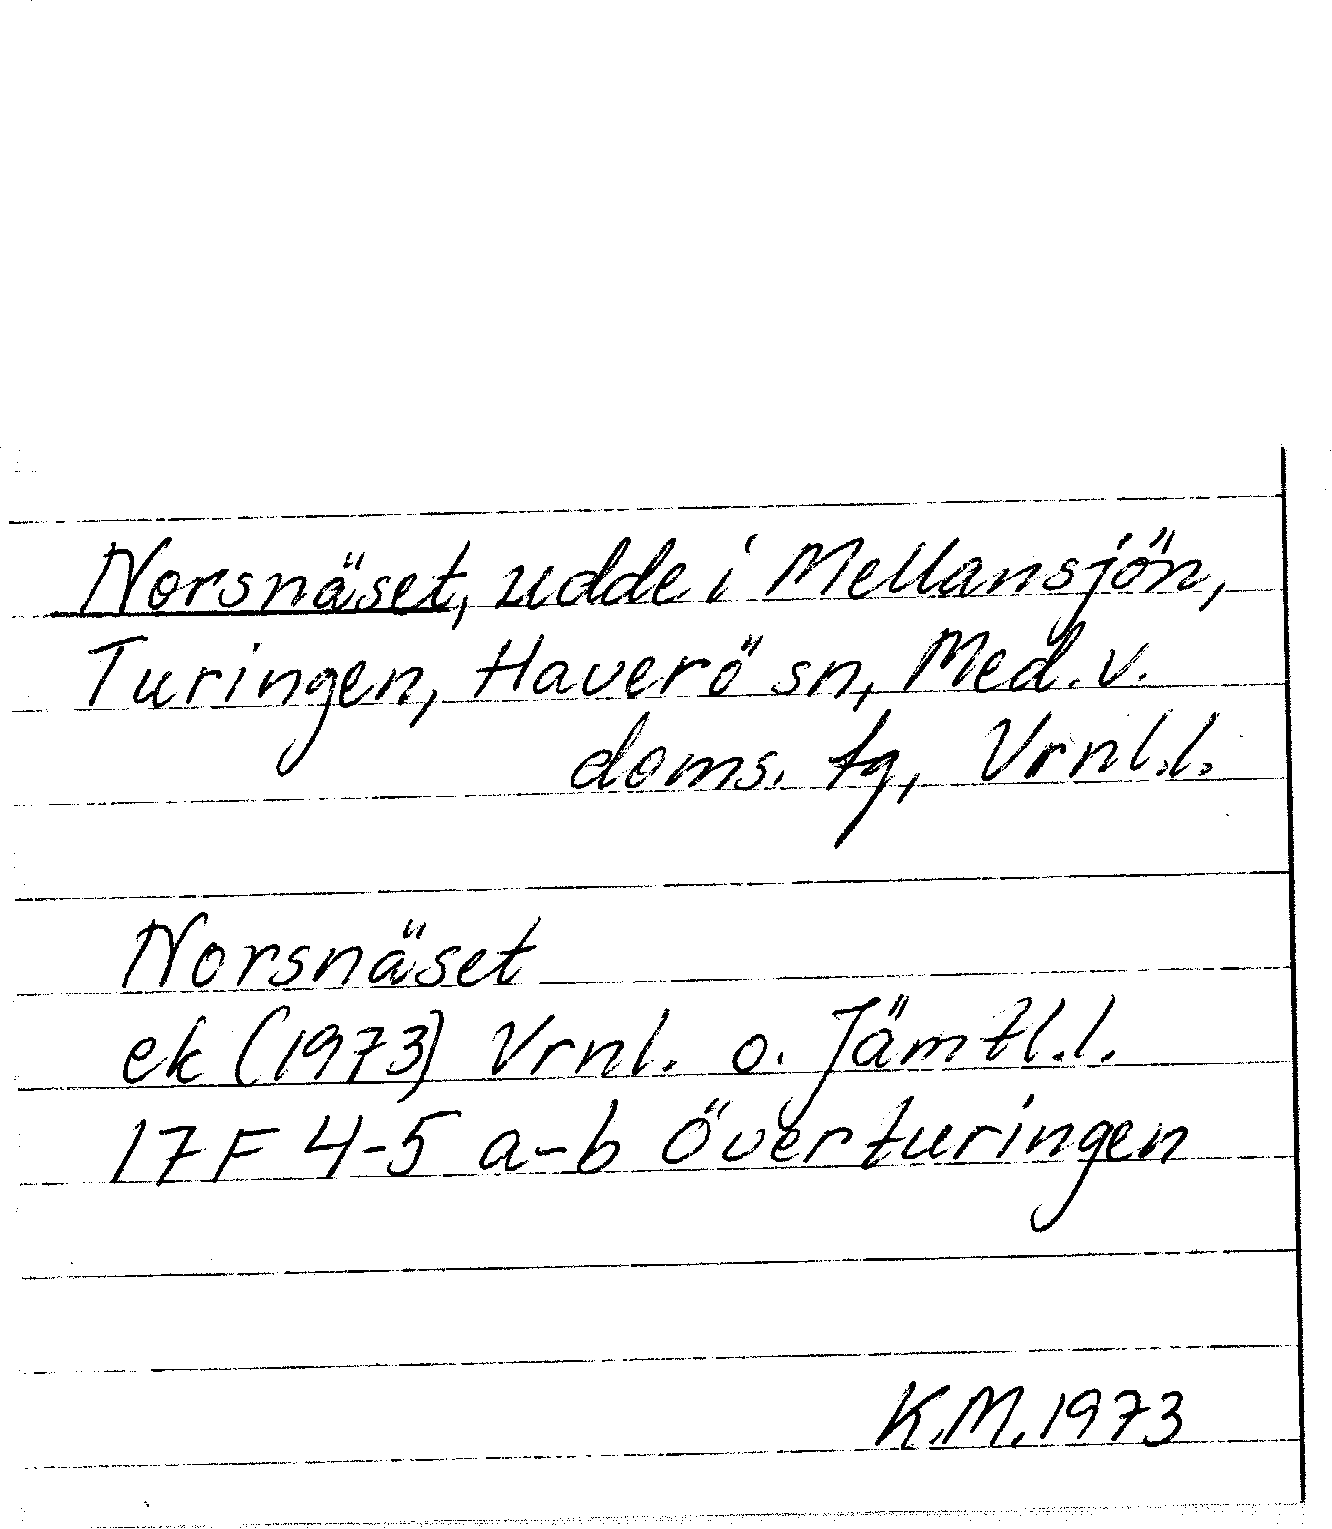 Norsnäset, udde i Mellansjön,
Turingen, Haverö sn, Med. v.
doms. tg, Vrnl.l.
Norsnäset
ek (1973) Vrnl. o. Jämtl.l.
17F 4-5 a-b Överturingen
K.M. 1973